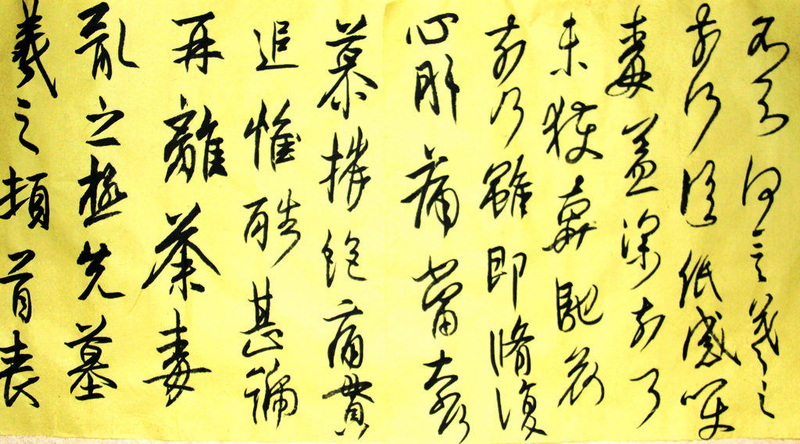 羲之頓首喪
亂之極先墓
再離荼毒
追惟酷甚號
慕摧絕痛貫
心肝痛當奈何
奈何雖即脩復
未獲奔馳哀
毒益深奈何
奈何臨紙感哽
不知何言羲之